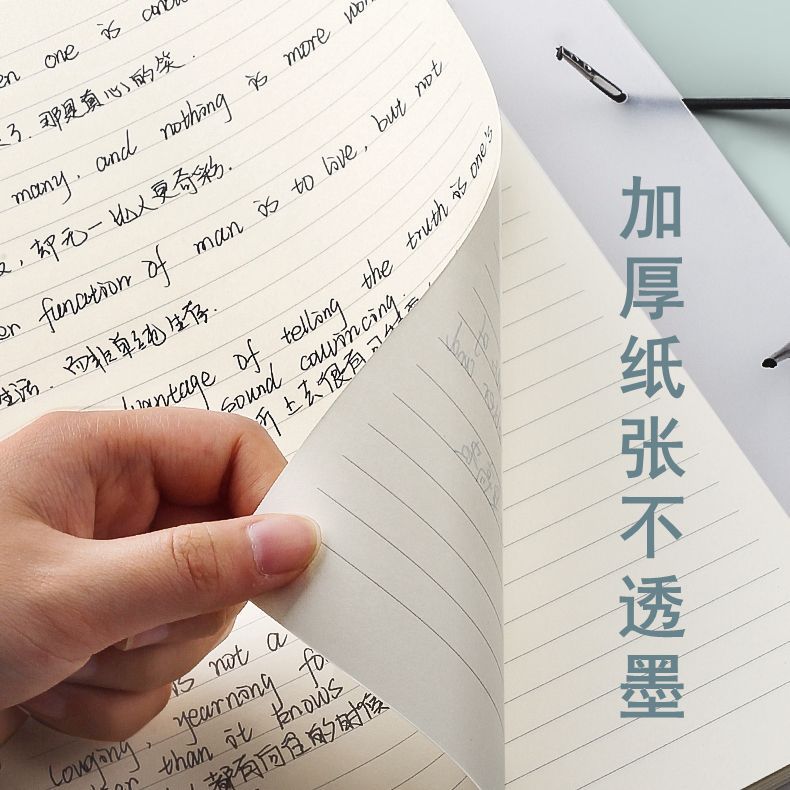 en one is
了. 那是真心的笑.
many, and nothing is more won
, 却无一比人更奇彩.
er function of man is to live, but not
生活. 而非单纯生存.
vantage of telling the truth is one's
sound convincing.
听上去很有可
is not a
Longing, yearning fo
er than it knows
都有向往的时候
加厚纸张不透墨